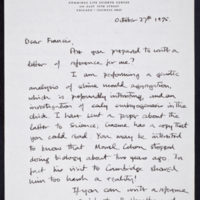 October 27th 1975.
Dear Francis,
Are you prepared to write a
letter of reference for me?
I am performing a genetic
analysis of slime mould aggregation,
which is profoundly interesting, and an
investigation of early embryogenesis in the
chick. I have sent a paper about the
latter to Science. Graeme has a copy that
you could read. You may be interested
to know that Morrel Cohen, stopped
doing biology about two years ago. In
fact his visit to Cambridge showed
him too harsh a reality!
If you can write a reference